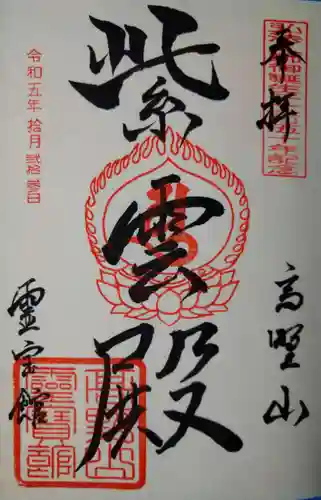 奉拝
高野山
紫雲殿
令和五年 拾月 弐拾参日
霊宝館